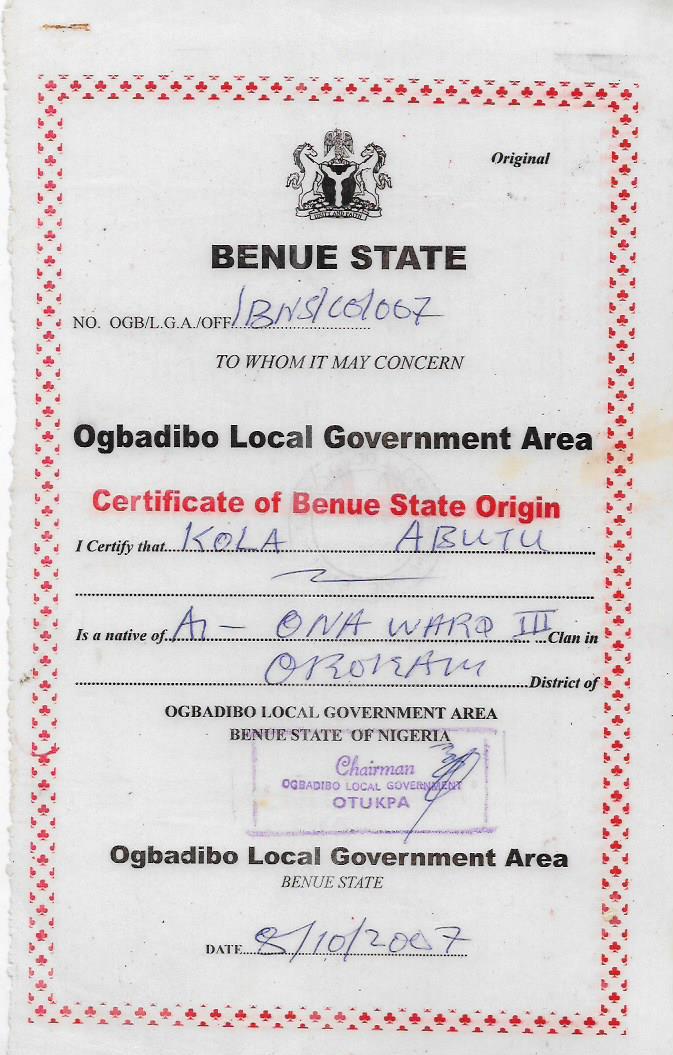 Original
UNITY AND FAITH
BENUE STATE
NO. OGB/L.G.A./OFF/BNS/CO/007
TO WHOM IT MAY CONCERN
Ogbadibo Local Government Area
Certificate of Benue State Origin
I Certify that KOLA ABUTU
Is a native of AI - ONA WARD III Clan in
District of
OGBADIBO LOCAL GOVERNMENT AREA
BENUE STATE OF NIGERIA
Chairman
OGBADIBO LOCAL GOVERNMENT
OTUKPA
Ogbadibo Local Government Area
BENUE STATE
DATE 8/10/2007